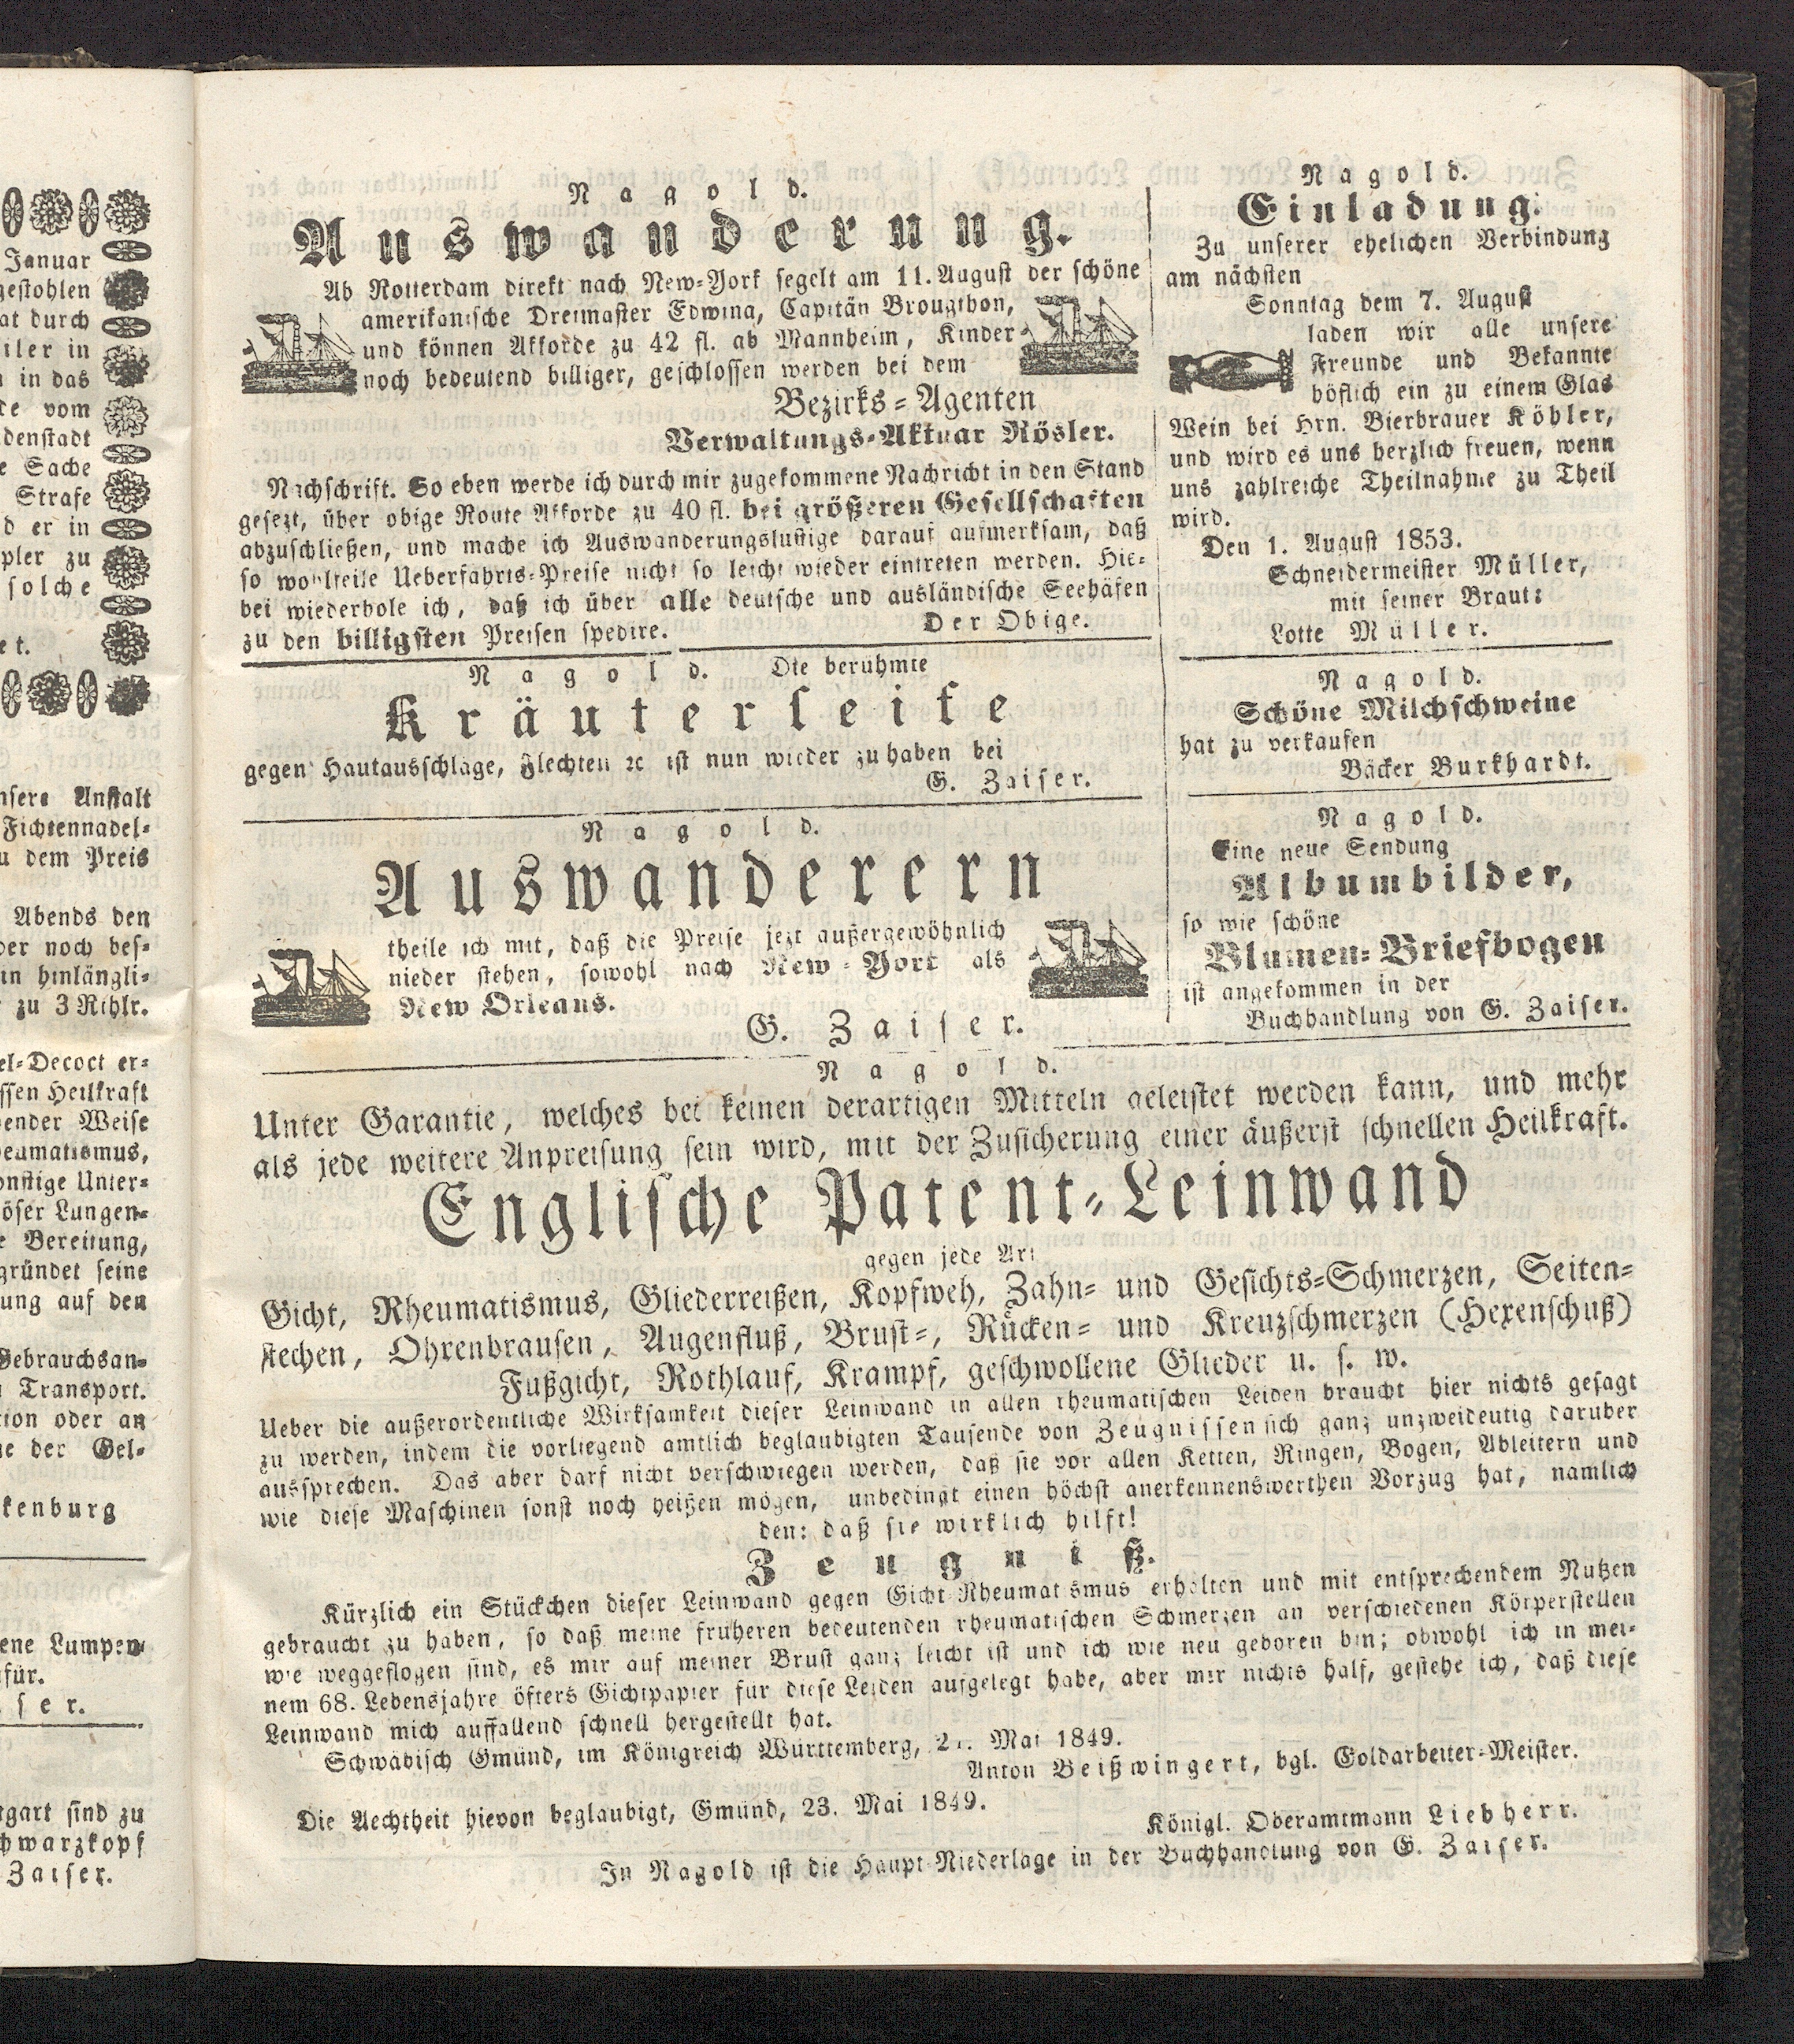 Januar
gestohlen
at durch
iler in
in in das
de vom
denstadt
e Sache
Strafe
d er in
pler zu
solche
et.
nsere Anstalt
Fichtennadel-
u dem Preis
Abends den
ber noch bes-
in hinlängli-
zu 3 Rthlr.
el-Decoct er-
ssen Heilkraft
ender Weise
eumatismus,
onstige Unter-
öser Lungen-
e Bereitung,
gründet seine
ung auf den
Gebrauchsan-
Transport.
tion oder an
ne der Gel-
kenburg
ene Lumpen
für.
ser.
tgart sind zu
chwarzkopf
Zaiser.
Nagold.
Auswanderung.
Ab Rotterdam direkt nach New-York segelt am 11. August der schöne
amerikanische Dreimaster Edwina, Capitän Brougthon,
und können Akkorde zu 42 fl. ab Mannheim, Kinder
noch bedeutend billiger, geschlossen werden bei dem
Bezirks-Agenten
Verwaltungs-Aktuar Rösler.
Nachschrift. So eben werde ich durch mir zugekommene Nachricht in den Stand
gesezt, über obige Route Akkorde zu 40 fl. bei größeren Gesellschaften
abzuschließen, und mache ich Auswanderungslustige darauf aufmerksam, daß
so wohlfeile Ueberfahrts-Preise nicht so leicht wieder eintreten werden. Hie-
bei wiederhole ich, daß ich über alle deutsche und ausländische Seehäfen
zu den billigsten Preisen spedire.
Der Obige.
Nagold. Die berühmte
Kräuterseife
gegen Hautausschläge, Flechten ꝛc ist nun wieder zu haben bei
G. Zaiser.
Nagold.
Auswanderern
theile ich mit, daß die Preise jezt außergewöhnlich
nieder stehen, sowohl nach New-York als
New Orleans.
G. Zaiser.
Nagold.
Einladung.
Zu unserer ehelichen Verbindung
am nächsten
Sonntag dem 7. August
laden wir alle unsere
Freunde und Bekannte
höflich ein zu einem Glas
Wein bei Hrn. Bierbrauer Köhler,
und wird es uns herzlich freuen, wenn
uns zahlreiche Theilnahme zu Theil
wird.
Den 1. August 1853.
Schneidermeister Müller,
mit seiner Braut:
Lotte Müller.
Nagold.
Schöne Milchschweine
hat zu verkaufen
Bäcker Burkhardt.
Nagold.
Eine neue Sendung
Albumbilder,
so wie schöne
Blumen-Briefbogen
ist angekommen in der
Buchhandlung von G. Zaiser.
Nagold.
Unter Garantie, welches bei keinen derartigen Mitteln geleistet werden kann, und mehr
als jede weitere Anpreisung sein wird, mit der Zusicherung einer äußerst schnellen Heilkraft.
Englische Patent-Leinwand
gegen jede Art
Gicht, Rheumatismus, Gliederreißen, Kopfweh, Zahn- und Gesichts-Schmerzen, Seiten-
stechen, Ohrenbrausen, Augenfluß, Brust-, Rücken- und Kreuzschmerzen (Hexenschuß)
Fußgicht, Rothlauf, Krampf, geschwollene Glieder u. s. w.
Ueber die außerordentliche Wirksamkeit dieser Leinwand in allen rheumatischen Leiden braucht hier nichts gesagt
zu werden, indem die vorliegend amtlich beglaubigten Tausende von Zeugnissen sich ganz unzweideutig darüber
aussprechen. Das aber darf nicht verschwiegen werden, daß sie vor allen Ketten, Ringen, Bogen, Ableitern und
wie diese Maschinen sonst noch heißen mögen, unbedingt einen höchst anerkennenswerthen Vorzug hat, nämlich
den: daß sie wirklich hilft!
Zeugniß.
Kürzlich ein Stückchen dieser Leinwand gegen Gicht Rheumatismus erhalten und mit entsprechendem Nutzen
gebraucht zu haben, so daß meine früheren bedeutenden rheumatischen Schmerzen an verschiedenen Körperstellen
wie weggeflogen sind, es mir auf meiner Brust ganz leicht ist und ich wie neu geboren bin; obwohl ich in mei-
nem 68. Lebensjahre öfters Gichtpapier für diese Leiden aufgelegt habe, aber mir nichts half, gestehe ich, daß diese
Leinwand mich auffallend schnell hergestellt hat.
Schwäbisch Gmünd, im Königreich Württemberg, Mai 1849.
Anton Beißwingert, bgl. Goldarbeiter-Meister.
Die Aechtheit hievon beglaubigt, Gmünd, 23. Mai 1849.
Königl. Oberamtmann Liebherr.
In Nagold ist die Haupt-Niederlage in der Buchhandlung von G. Zaiser.